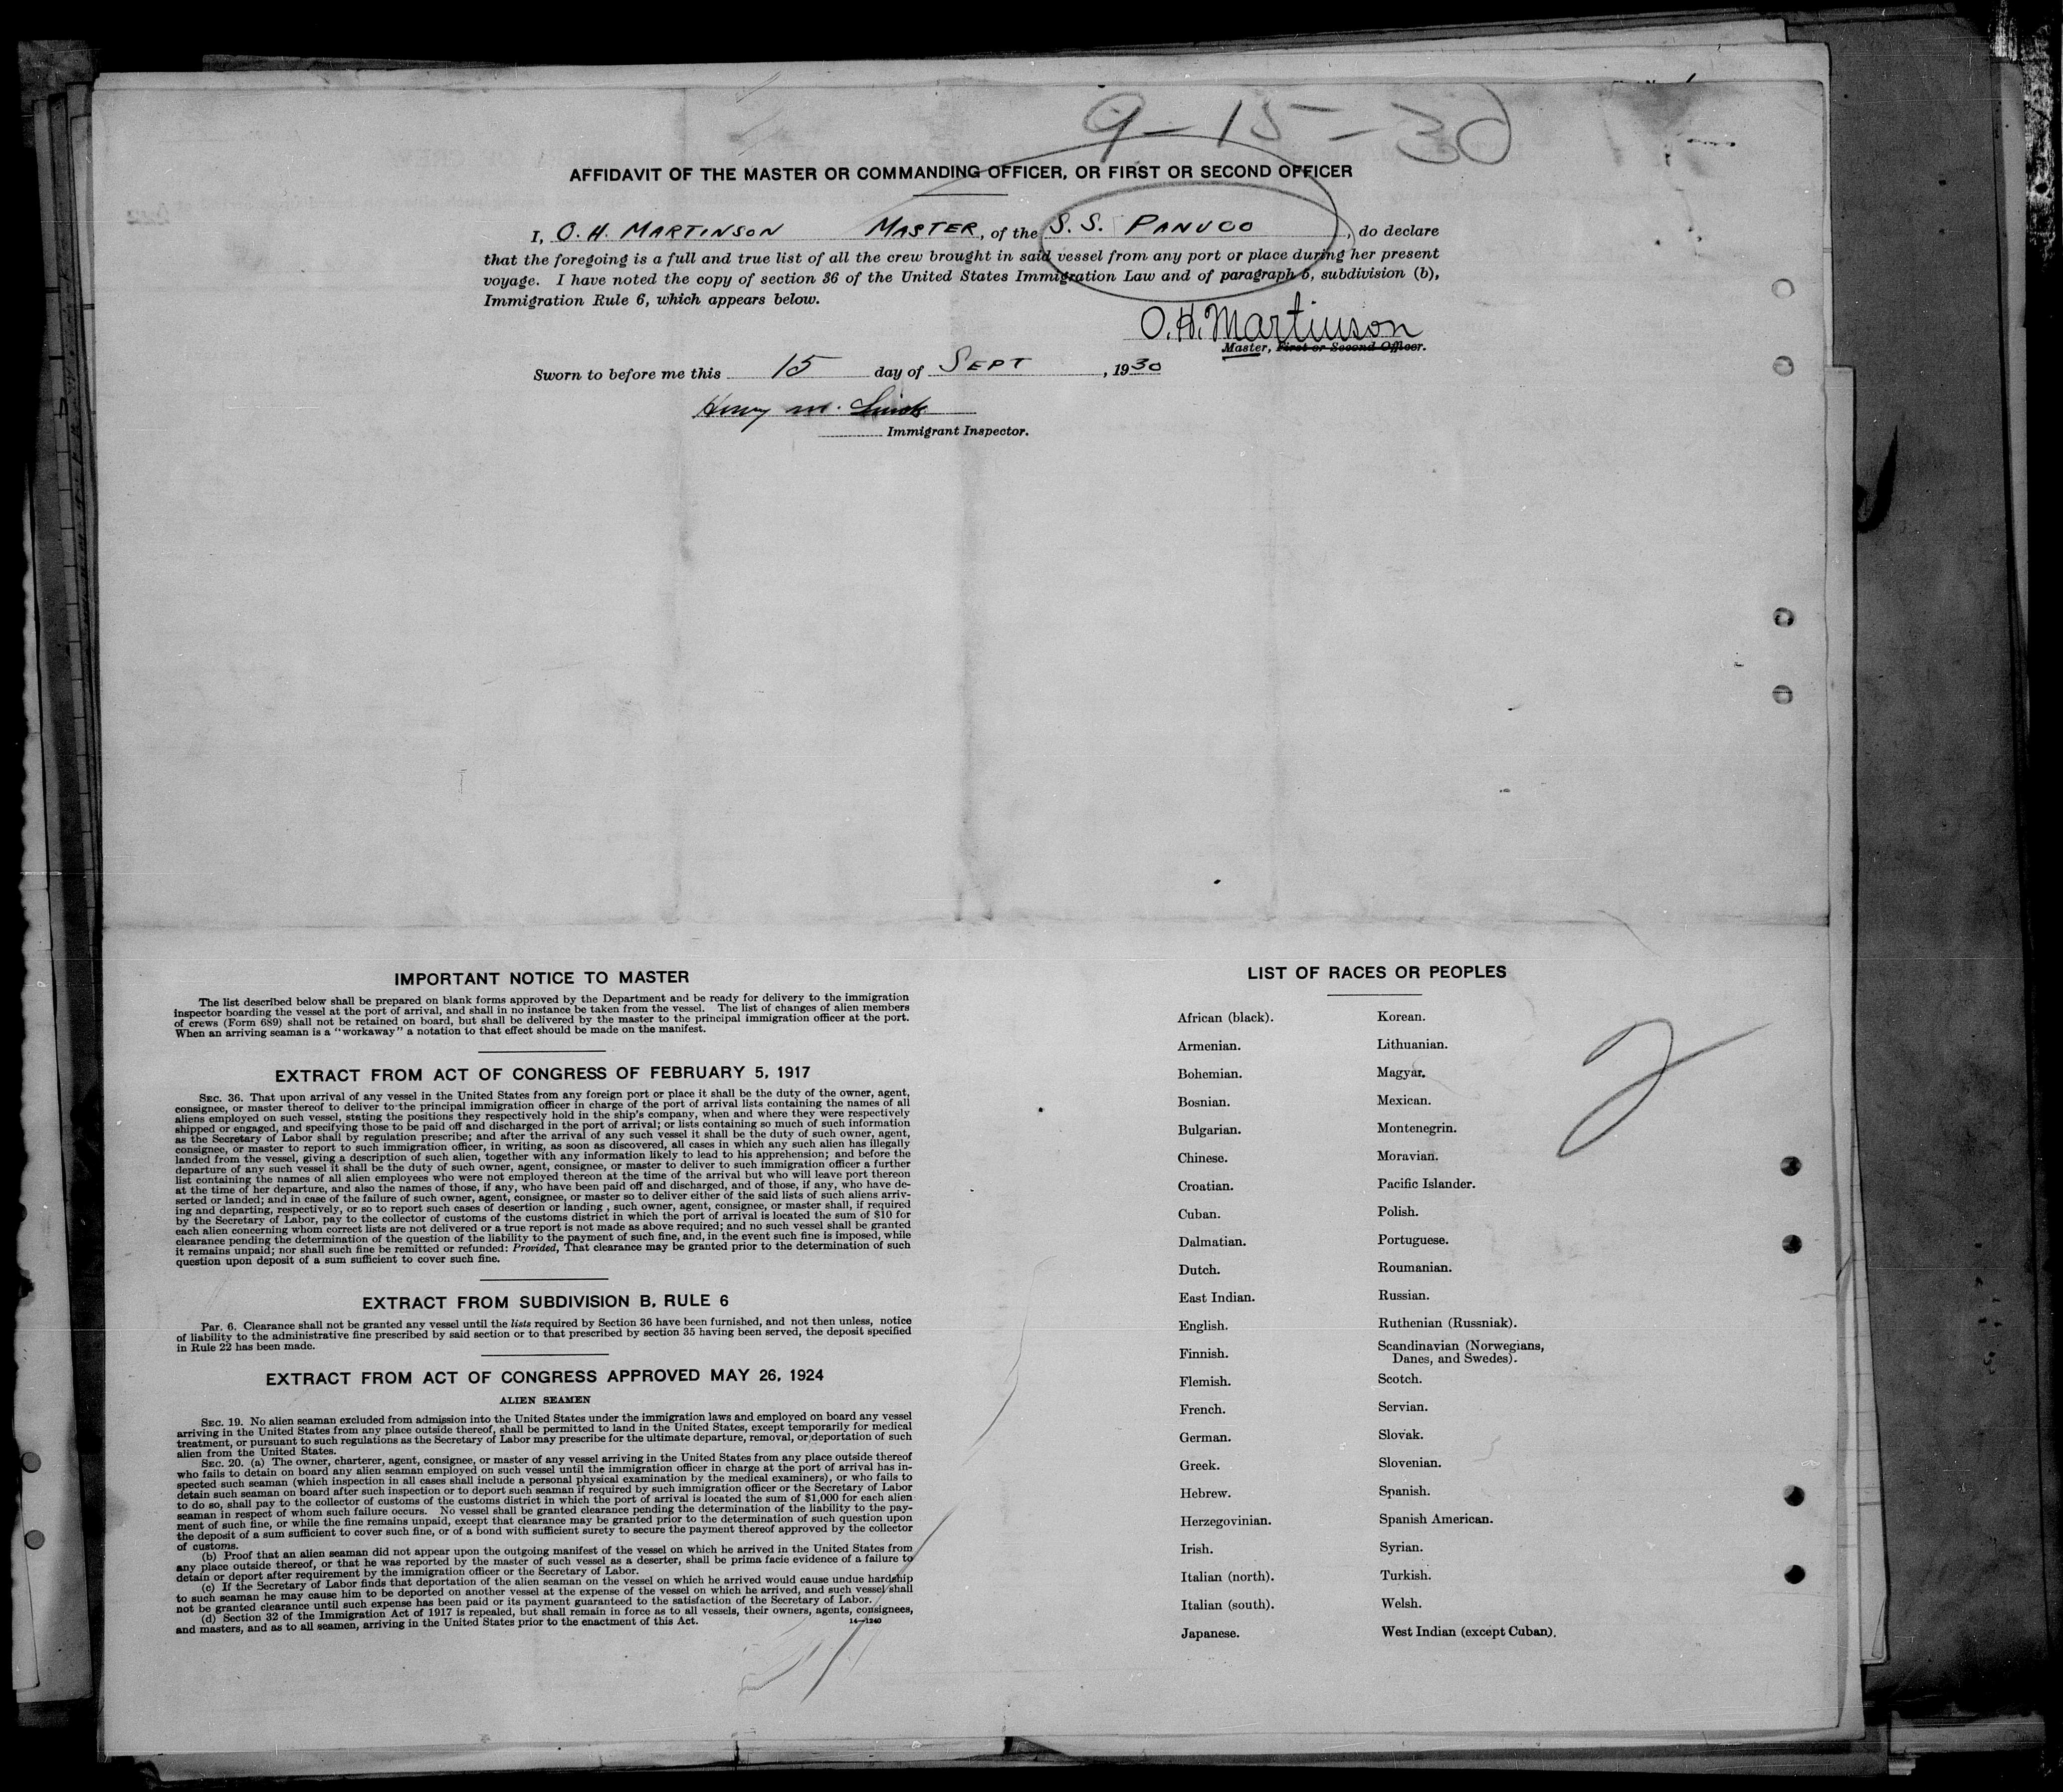 9-15-30
AFFIDAVIT OF THE MASTER OR COMMANDING OFFICER, OR FIRST OR SECOND OFFICER
I, O. H. MARTINSON MASTER, of the S. S. PANUCO, do declare
that the foregoing is a full and true list of all the crew brought in said vessel from any port or place during her present
voyage. I have noted the copy of section 36 of the United States Immigration Law and of paragraph 6, subdivision (b),
Immigration Rule 6, which appears below.
O. H. Martinson
Master, First or Second Officer.
Sworn to before me this 15 day of SEPT, 1930
Henry M.
Immigrant Inspector.
IMPORTANT NOTICE TO MASTER
The list described below shall be prepared on blank forms approved by the Department and be ready for delivery to the immigration
inspector boarding the vessel at the port of arrival, and shall in no instance be taken from the vessel. The list of changes of alien members
of crews (Form 689) shall not be retained on board, but shall be delivered by the master to the principal immigration officer at the port.
When an arriving seaman is a "workaway" a notation to that effect should be made on the manifest.
EXTRACT FROM ACT OF CONGRESS OF FEBRUARY 5, 1917
SEC. 36. That upon arrival of any vessel in the United States from any foreign port or place it shall be the duty of the owner, agent,
consignee, or master thereof to deliver to the principal immigration officer in charge of the port of arrival lists containing the names of all
aliens employed on such vessel, stating the positions they respectively hold in the ship's company, when and where they were respectively
shipped or engaged, and specifying those to be paid off and discharged in the port of arrival; or lists containing so much of such information
as the Secretary of Labor shall by regulation prescribe; and after the arrival of any such vessel it shall be the duty of such owner, agent,
consignee, or master to report to such immigration officer, in writing, as soon as discovered, all cases in which any such alien has illegally
landed from the vessel, giving a description of such alien, together with any information likely to lead to his apprehension; and before the
departure of any such vessel it shall be the duty of such owner, agent, consignee, or master to deliver to such immigration officer a further
list containing the names of all alien employees who were not employed thereon at the time of the arrival but who will leave port thereon
at the time of her departure, and also the names of those, if any, who have been paid off and discharged, and of those, if any, who have de-
serted or landed; and in case of the failure of such owner, agent, consignee, or master so to deliver either of the said lists of such aliens arriv-
ing and departing, respectively, or so to report such cases of desertion or landing, such owner, agent, consignee, or master shall, if required
by the Secretary of Labor, pay to the collector of customs of the customs district in which the port of arrival is located the sum of $10 for
each alien concerning whom correct lists are not delivered or a true report is not made as above required; and no such vessel shall be granted
clearance pending the determination of the question of the liability to the payment of such fine, and, in the event such fine is imposed, while
it remains unpaid; nor shall such fine be remitted or refunded: Provided, That clearance may be granted prior to the determination of such
question upon deposit of a sum sufficient to cover such fine.
EXTRACT FROM SUBDIVISION B, RULE 6
Par. 6. Clearance shall not be granted any vessel until the lists required by Section 36 have been furnished, and not then unless, notice
of liability to the administrative fine prescribed by said section or to that prescribed by section 35 having been served, the deposit specified
in Rule 22 has been made.
EXTRACT FROM ACT OF CONGRESS APPROVED MAY 26, 1924
ALIEN SEAMEN
SEC. 19. No alien seaman excluded from admission into the United States under the immigration laws and employed on board any vessel
arriving in the United States from any place outside thereof, shall be permitted to land in the United States, except temporarily for medical
treatment, or pursuant to such regulations as the Secretary of Labor may prescribe for the ultimate departure, removal, or deportation of such
alien from the United States.
SEC. 20. (a) The owner, charterer, agent, consignee, or master of any vessel arriving in the United States from any place outside thereof
who fails to detain on board any alien seaman employed on such vessel until the immigration officer in charge at the port of arrival has in-
spected such seaman (which inspection in all cases shall include a personal physical examination by the medical examiners), or who fails to
detain such seaman on board after such inspection or to deport such seaman if required by such immigration officer or the Secretary of Labor
to do so, shall pay to the collector of customs of the customs district in which the port of arrival is located the sum of $1,000 for each alien
seaman in respect of whom such failure occurs. No vessel shall be granted clearance pending the determination of the liability to the pay-
ment of such fine, or while the fine remains unpaid, except that clearance may be granted prior to the determination of such question upon
the deposit of a sum sufficient to cover such fine, or of a bond with sufficient surety to secure the payment thereof approved by the collector
of customs.
(b) Proof that an alien seaman did not appear upon the outgoing manifest of the vessel on which he arrived in the United States from
any place outside thereof, or that he was reported by the master of such vessel as a deserter, shall be prima facie evidence of a failure to
detain or deport after requirement by the immigration officer or the Secretary of Labor.
(c) If the Secretary of Labor finds that deportation of the alien seaman on the vessel on which he arrived would cause undue hardship
to such seaman he may cause him to be deported on another vessel at the expense of the vessel on which he arrived, and such vessel shall
not be granted clearance until such expense has been paid or its payment guaranteed to the satisfaction of the Secretary of Labor.
(d) Section 32 of the Immigration Act of 1917 is repealed, but shall remain in force as to all vessels, their owners, agents, consignees,
and masters, and as to all seamen, arriving in the United States prior to the enactment of this Act. 14—1240
LIST OF RACES OR PEOPLES
African (black).
Armenian.
Bohemian.
Bosnian.
Bulgarian.
Chinese.
Croatian.
Cuban.
Dalmatian.
Dutch.
East Indian.
English.
Finnish.
Flemish.
French.
German.
Greek.
Hebrew.
Herzegovinian.
Irish.
Italian (north).
Italian (south).
Japanese.
Korean.
Lithuanian.
Magyar.
Mexican.
Montenegrin.
Moravian.
Pacific Islander.
Polish.
Portuguese.
Roumanian.
Russian.
Ruthenian (Russniak).
Scandinavian (Norwegians,
Danes, and Swedes).
Scotch.
Servian.
Slovak.
Slovenian.
Spanish.
Spanish American.
Syrian.
Turkish.
Welsh.
West Indian (except Cuban).
2